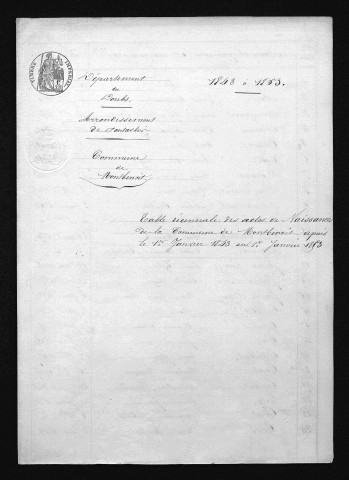 Département
du
Doubs.
1843 à 1853.
Arrondissement
de Pontarlier
Commune
de
Montbenoit
Table décennale des actes de Naissance
de la Commune de Montbenoit depuis
le 1er Janvier 1843 au 1er Janvier 1853